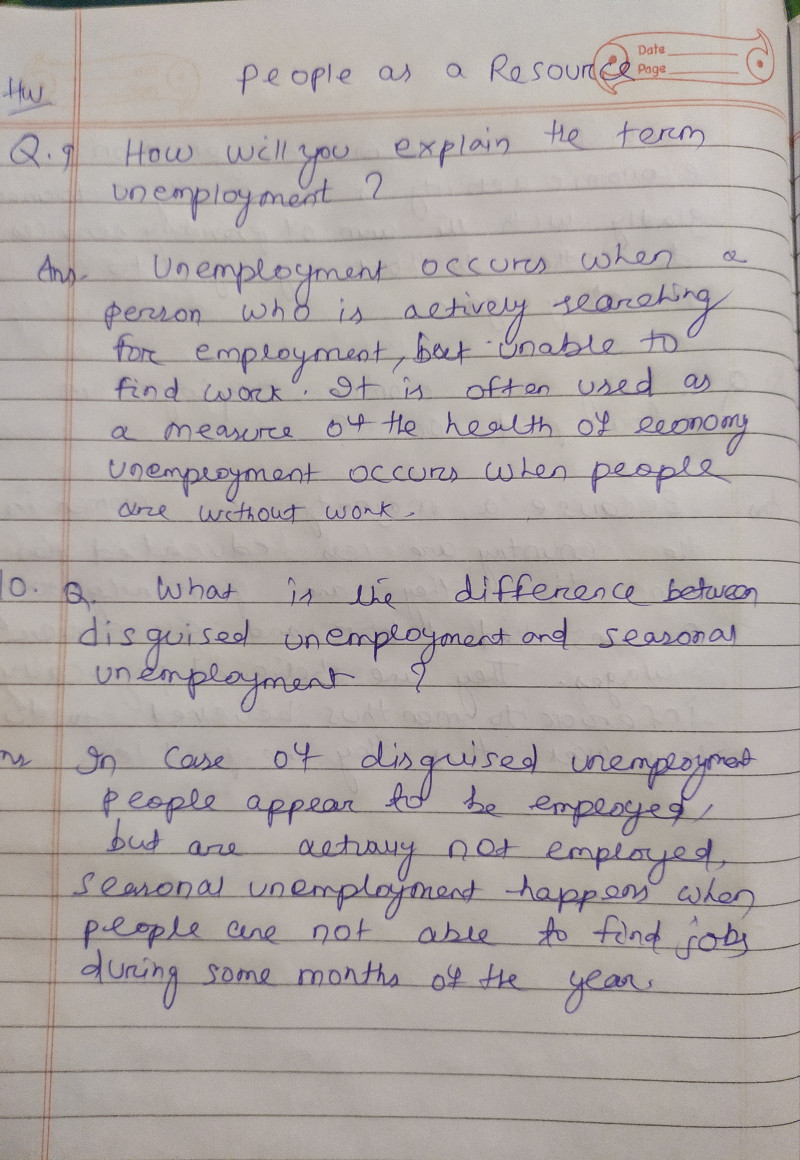 Date
Page
People as a Resource
HW
Q.9 How will you explain the term
unemployment ?
Ans. Unemployment occurs when a
person who is actively searching
for employment, but unable to
find work. It is often used as
a measure of the health of economy
unemployment occurs when people
are without work.
10. Q. What is the difference between
disguised unemployment and seasonal
unemployment ?
ns In case of disguised unemployment
people appear to be employed,
but are actually not employed,
seasonal unemployment happens when
people are not able to find jobs
during some months of the year.